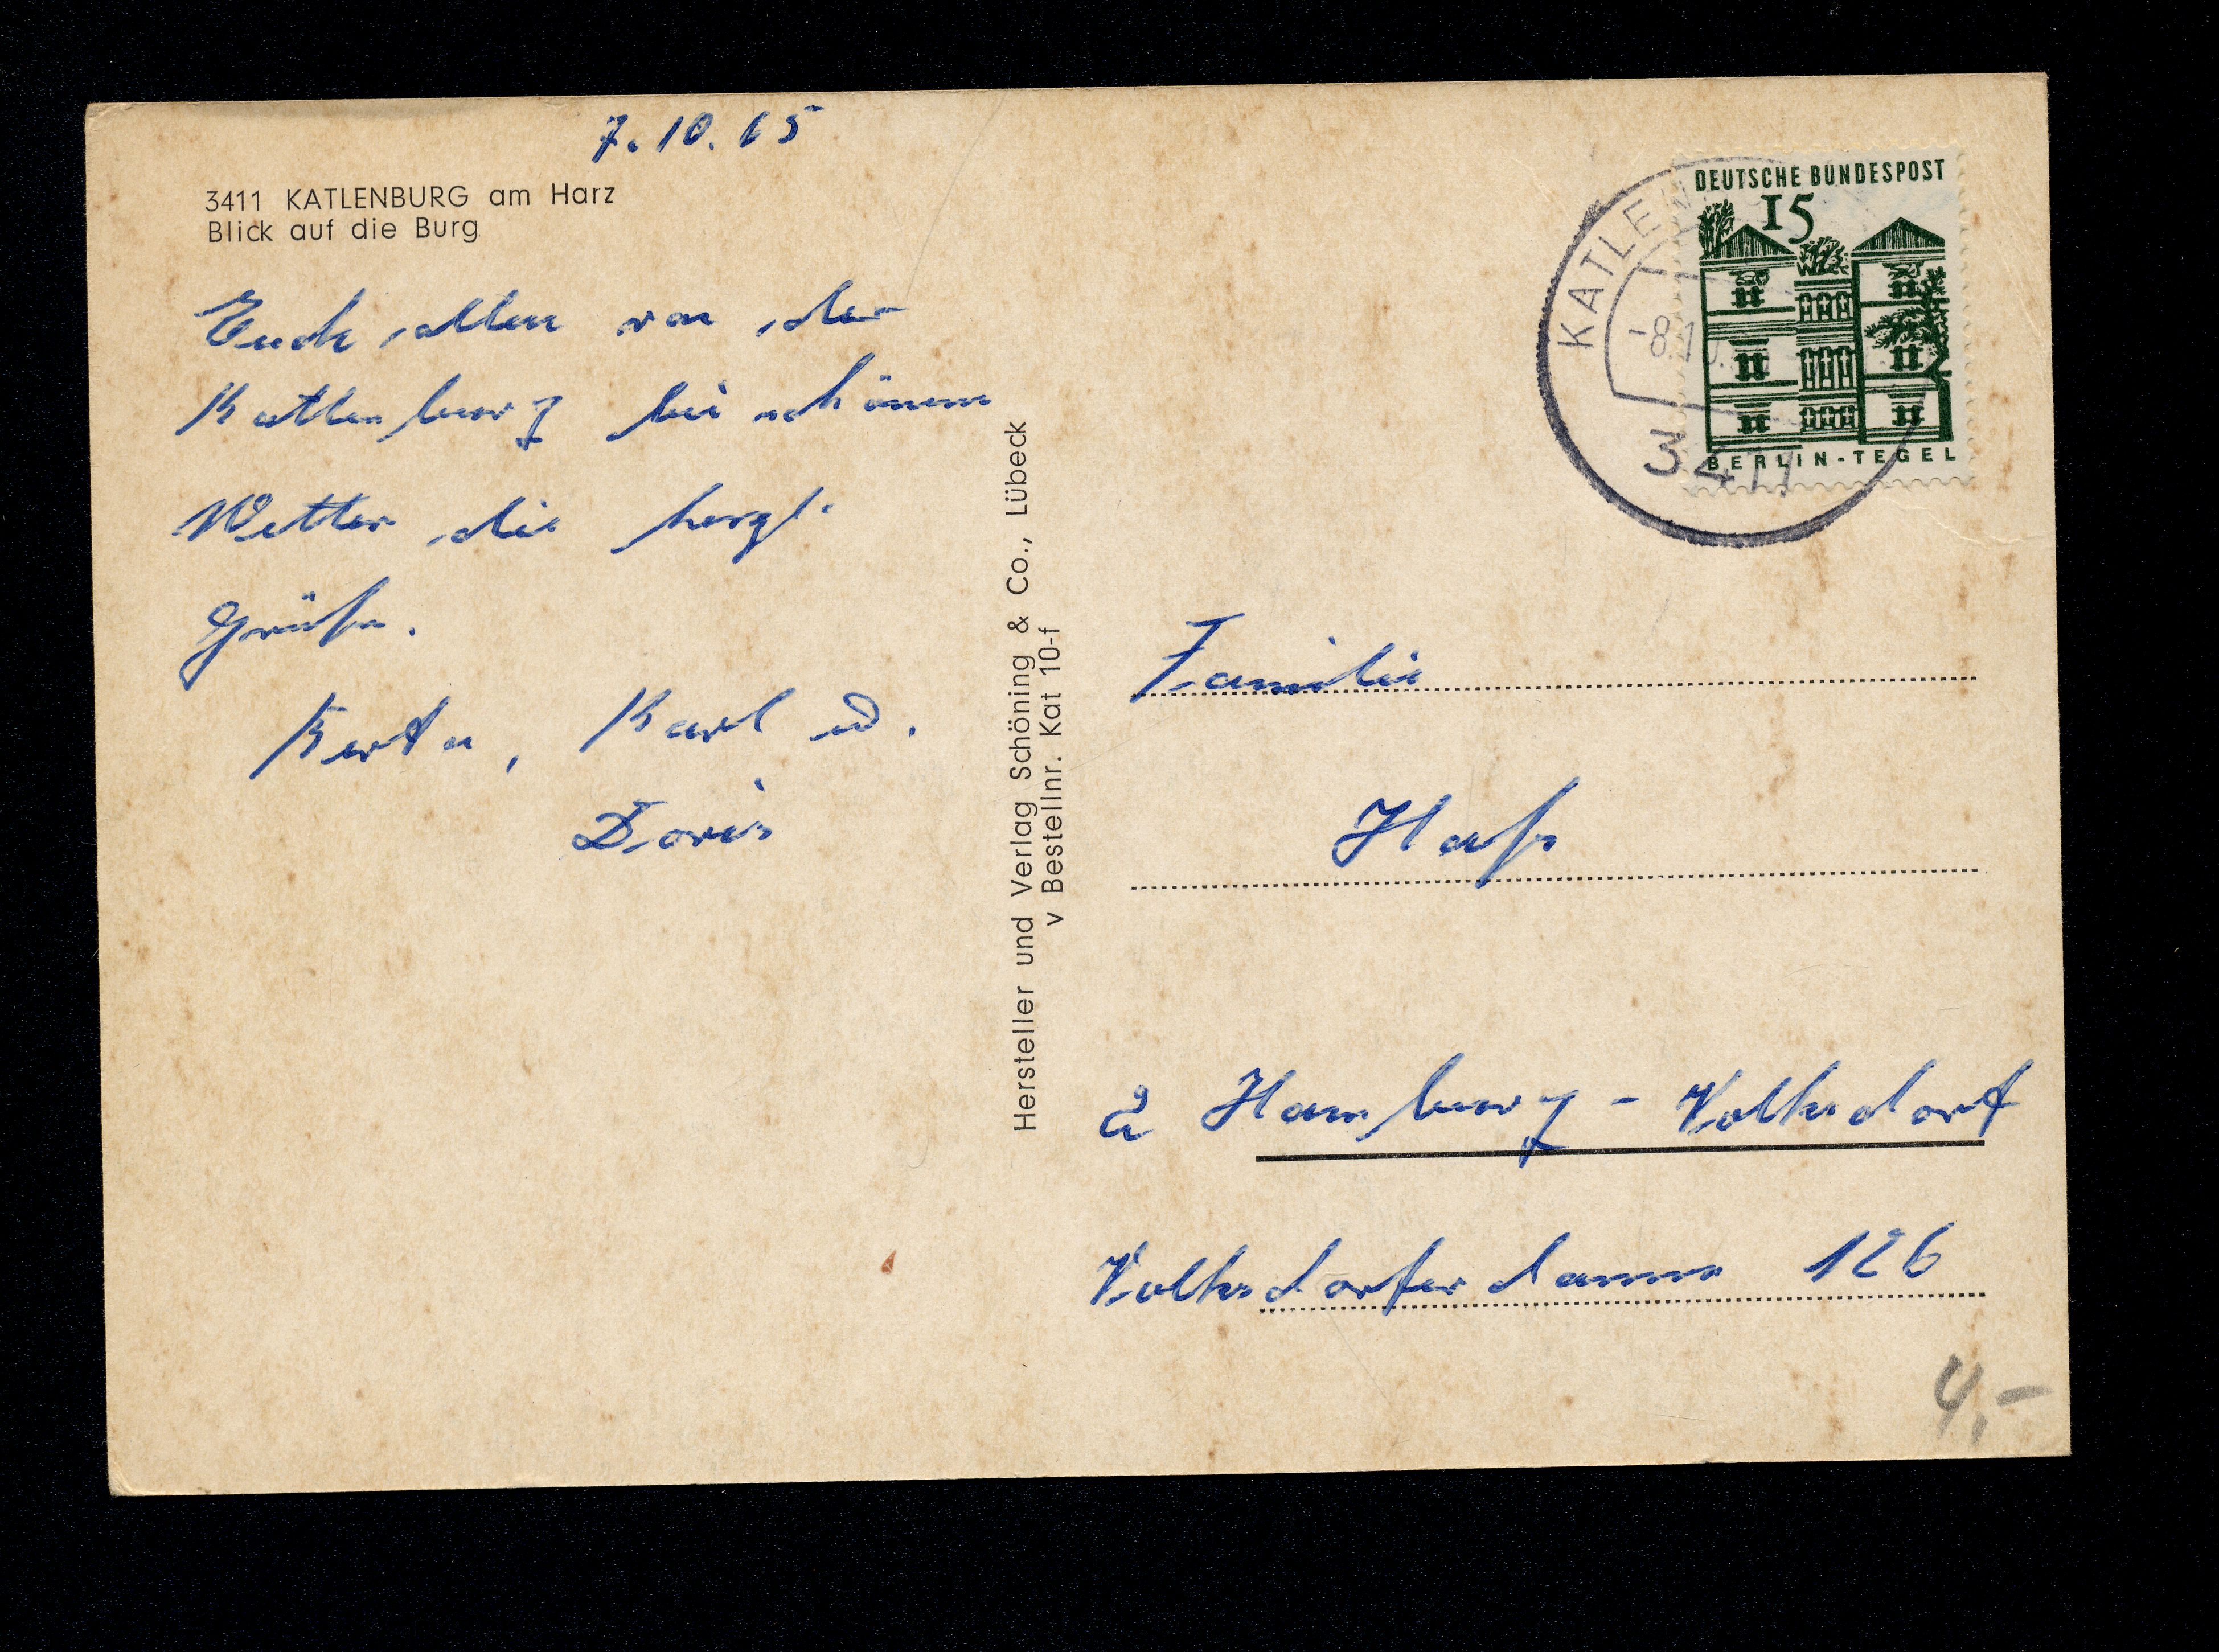 7.10.65
3411 KATLENBURG am Harz
Blick auf die Burg
Euch allen von der
Katlenburg bei schönem
Wetter die herzl.
Grüße.
Berta, Karl u.
Doris
Hersteller und Verlag Schöning & Co., Lübeck
v Bestellnr. Kat 10-f
DEUTSCHE BUNDESPOST
15
BERLIN-TEGEL
KATLEN
-8.10.
3411
Familie
Haß
Hamburg - Volksdorf
Volksdorfer damm 126
4,-